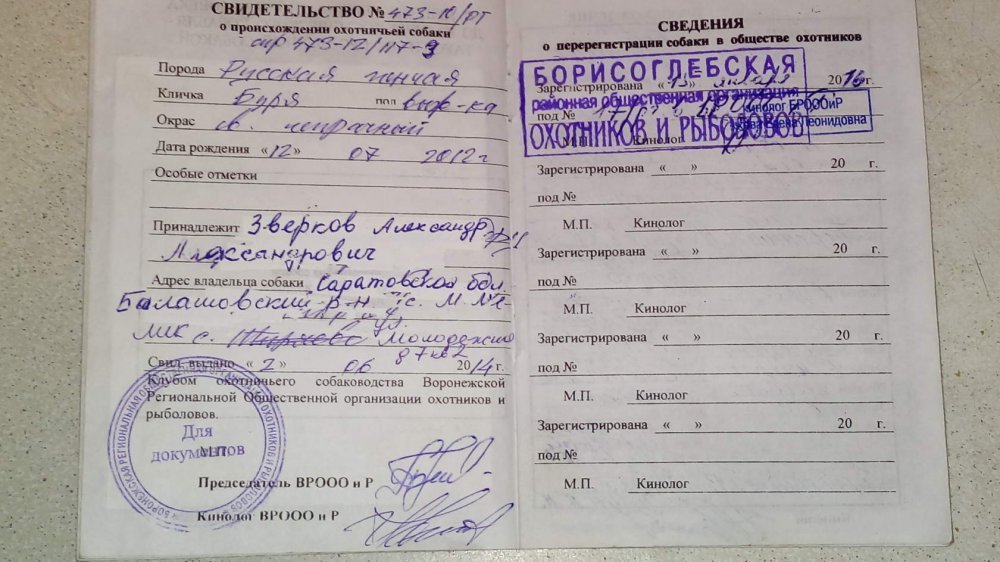 СВИДЕТЕЛЬСТВО № 473-10/РТ
о происхождении охотничьей собаки
473-12/117-9
Порода Русская гончая
Кличка Буря пол выж-ка
Окрас св. чепрачный
Дата рождения «12» 07 2012 г
Особые отметки
Принадлежит Зверков Александр
Александрович
Адрес владельца собаки Саратовская обл.
Балашовский р-н с. М. Ме-
лик с.
Свид. выдано «2» 06 2014 г.
Клубом охотничьего собаководства Воронежской
Региональной Общественной организации охотников и
рыболовов.
Для
документов
М.П.
Председатель ВРООО и Р
Кинолог ВРООО и Р
СВЕДЕНИЯ
о перерегистрации собаки в обществе охотников
Зарегистрирована «13» января 2016 г.
под №
М.П. Кинолог
БОРИСОГЛЕБСКАЯ
районная общественная организация
ОХОТНИКОВ И РЫБОЛОВОВ
Кинолог БРОООиР
Леонидовна
Зарегистрирована « » 20 г.
под №
М.П. Кинолог
Зарегистрирована « » 20 г.
под №
М.П. Кинолог
Зарегистрирована « » 20 г.
под №
М.П. Кинолог
Зарегистрирована « » 20 г.
под №
М.П. Кинолог